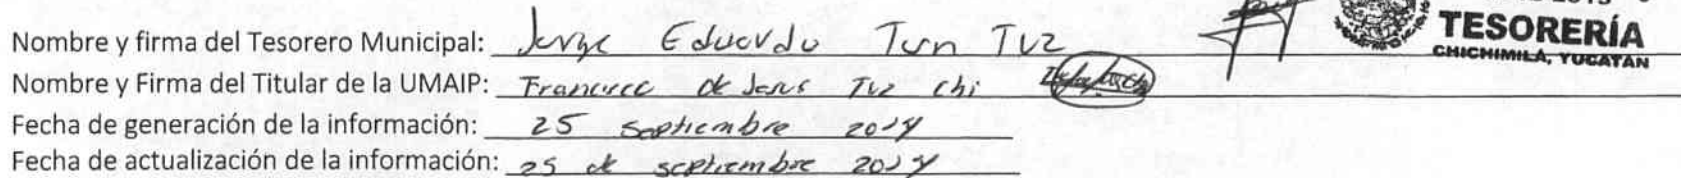 Nombre y firma del Tesorero Municipal: Jorge Eduardo Tun Tuz
TESORERÍA
CHICHIMILÁ, YUCATÁN
Nombre y Firma del Titular de la UMAIP: Francisco de Jesus Tuz Chi
Fecha de generación de la información: 25 septiembre 2014
Fecha de actualización de la información: 25 de septiembre 2014